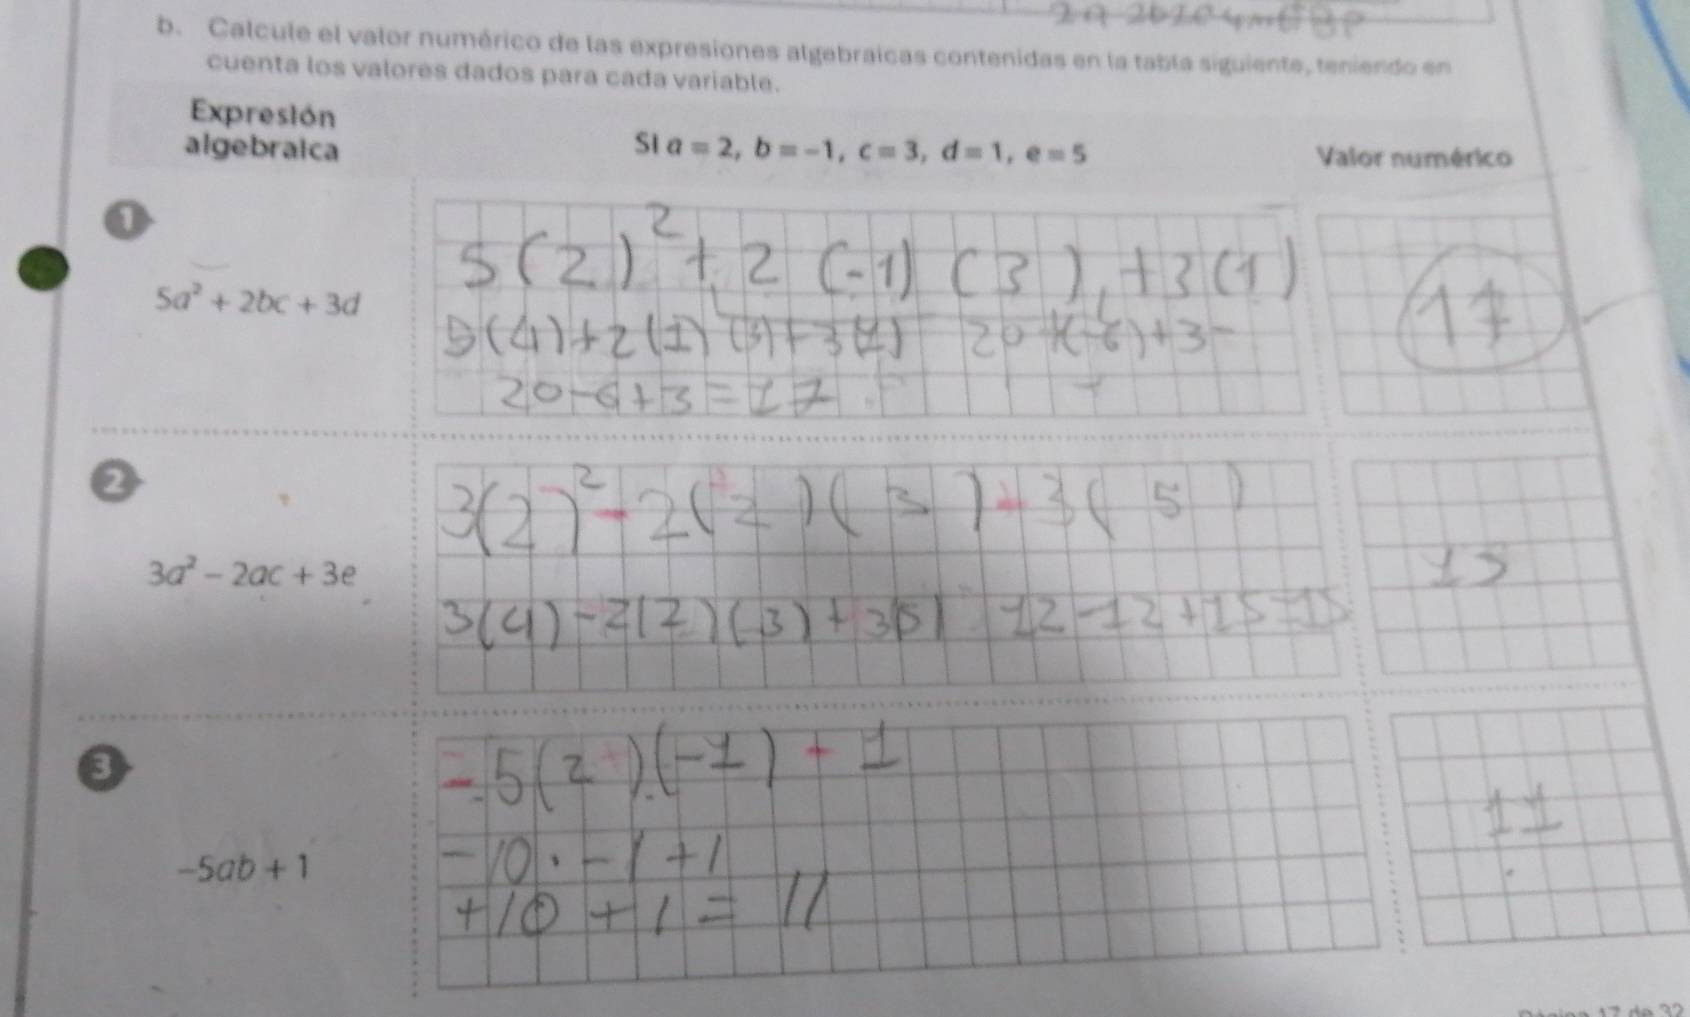 b. Calcule el valor numérico de las expresiones algebraicas contenidas en la tabla siguiente, teniendo en
cuenta los valores dados para cada variable.
Expresión
algebraica
Si a = 2, b = -1, c = 3, d = 1, e = 5
Valor numérico
1
5a² + 2bc + 3d
5(2)² + 2(-1)(3) + 3(1)
5(4)+2(1)(3)+3(1) 20+(-6)+3=
20-6+3=17
17
2
3a² - 2ac + 3e
3(2)² - 2(2)(3)+3(5)
3(4)-2(2)(3)+3(5) 12-12+15=15
15
3
-5ab + 1
-5(2)(-1)+1
-10·-1+1
+10+1=11
11
17 de 32